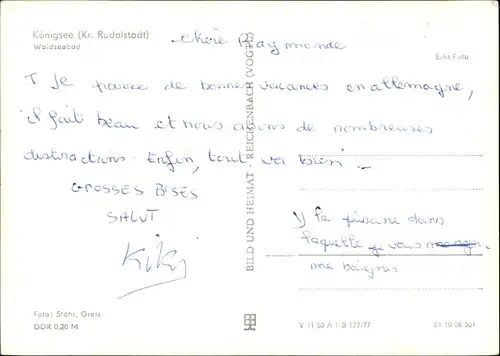 Königsee (Kr. Rudolstadt)
Waldseebad
Echt Foto
chère Raymonde
Je passe de bonnes vacances en allemagne,
il fait beau et nous avons de nombreuses
distractions. Enfin, tout va bien.
GROSSES BISES
SALUT
Kiki
1) la piscine dans
laquelle je vais
me baigner
BILD UND HEIMAT REICHENBACH (VOGTL)
Foto: Stöhr, Greiz
DDR 0,20 M
V 11 50 A 1/B 127/77
01 10 06 501